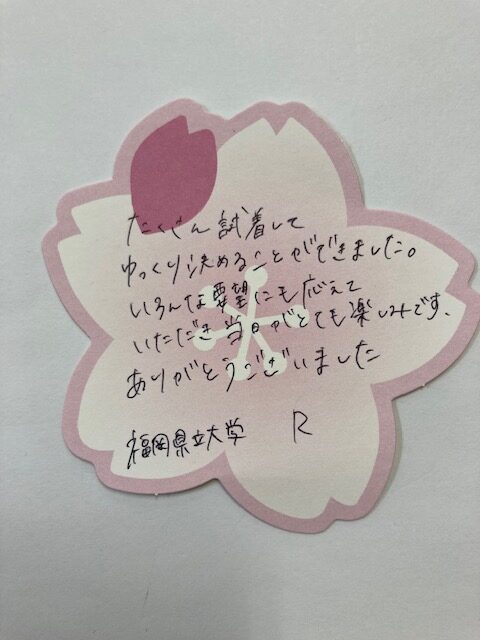 たくさん試着して
ゆっくり決めることができました。
いろんな要望にも応えて
いただき当日がとても楽しみです.
ありがとうございました
福岡県立大学 R